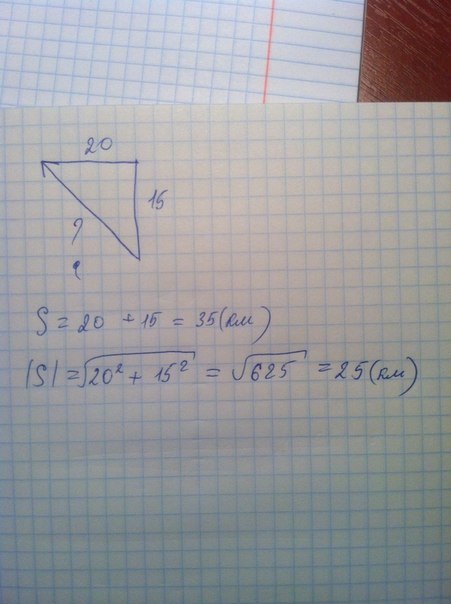 20
15
?
S = 20 + 15 = 35(км)
|S| = √20² + 15² = √625 = 25(км)